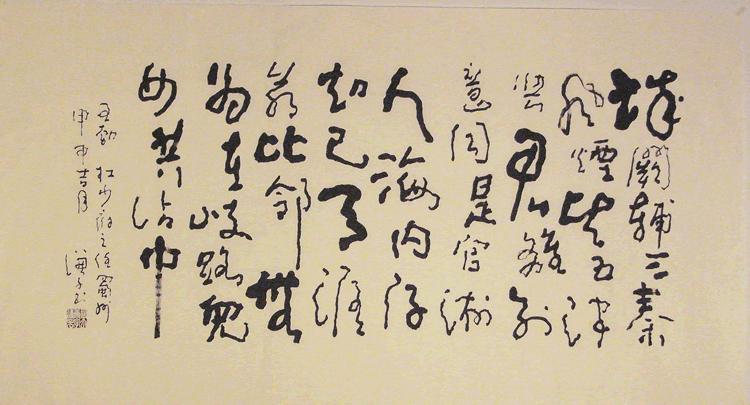 城闕輔三秦
風煙望五津
與君離別
意同是宦游
人海内存
知己天涯
若比鄰無
為在岐路兒
女共沾巾
王勃 杜少府之任蜀州
甲申吉月